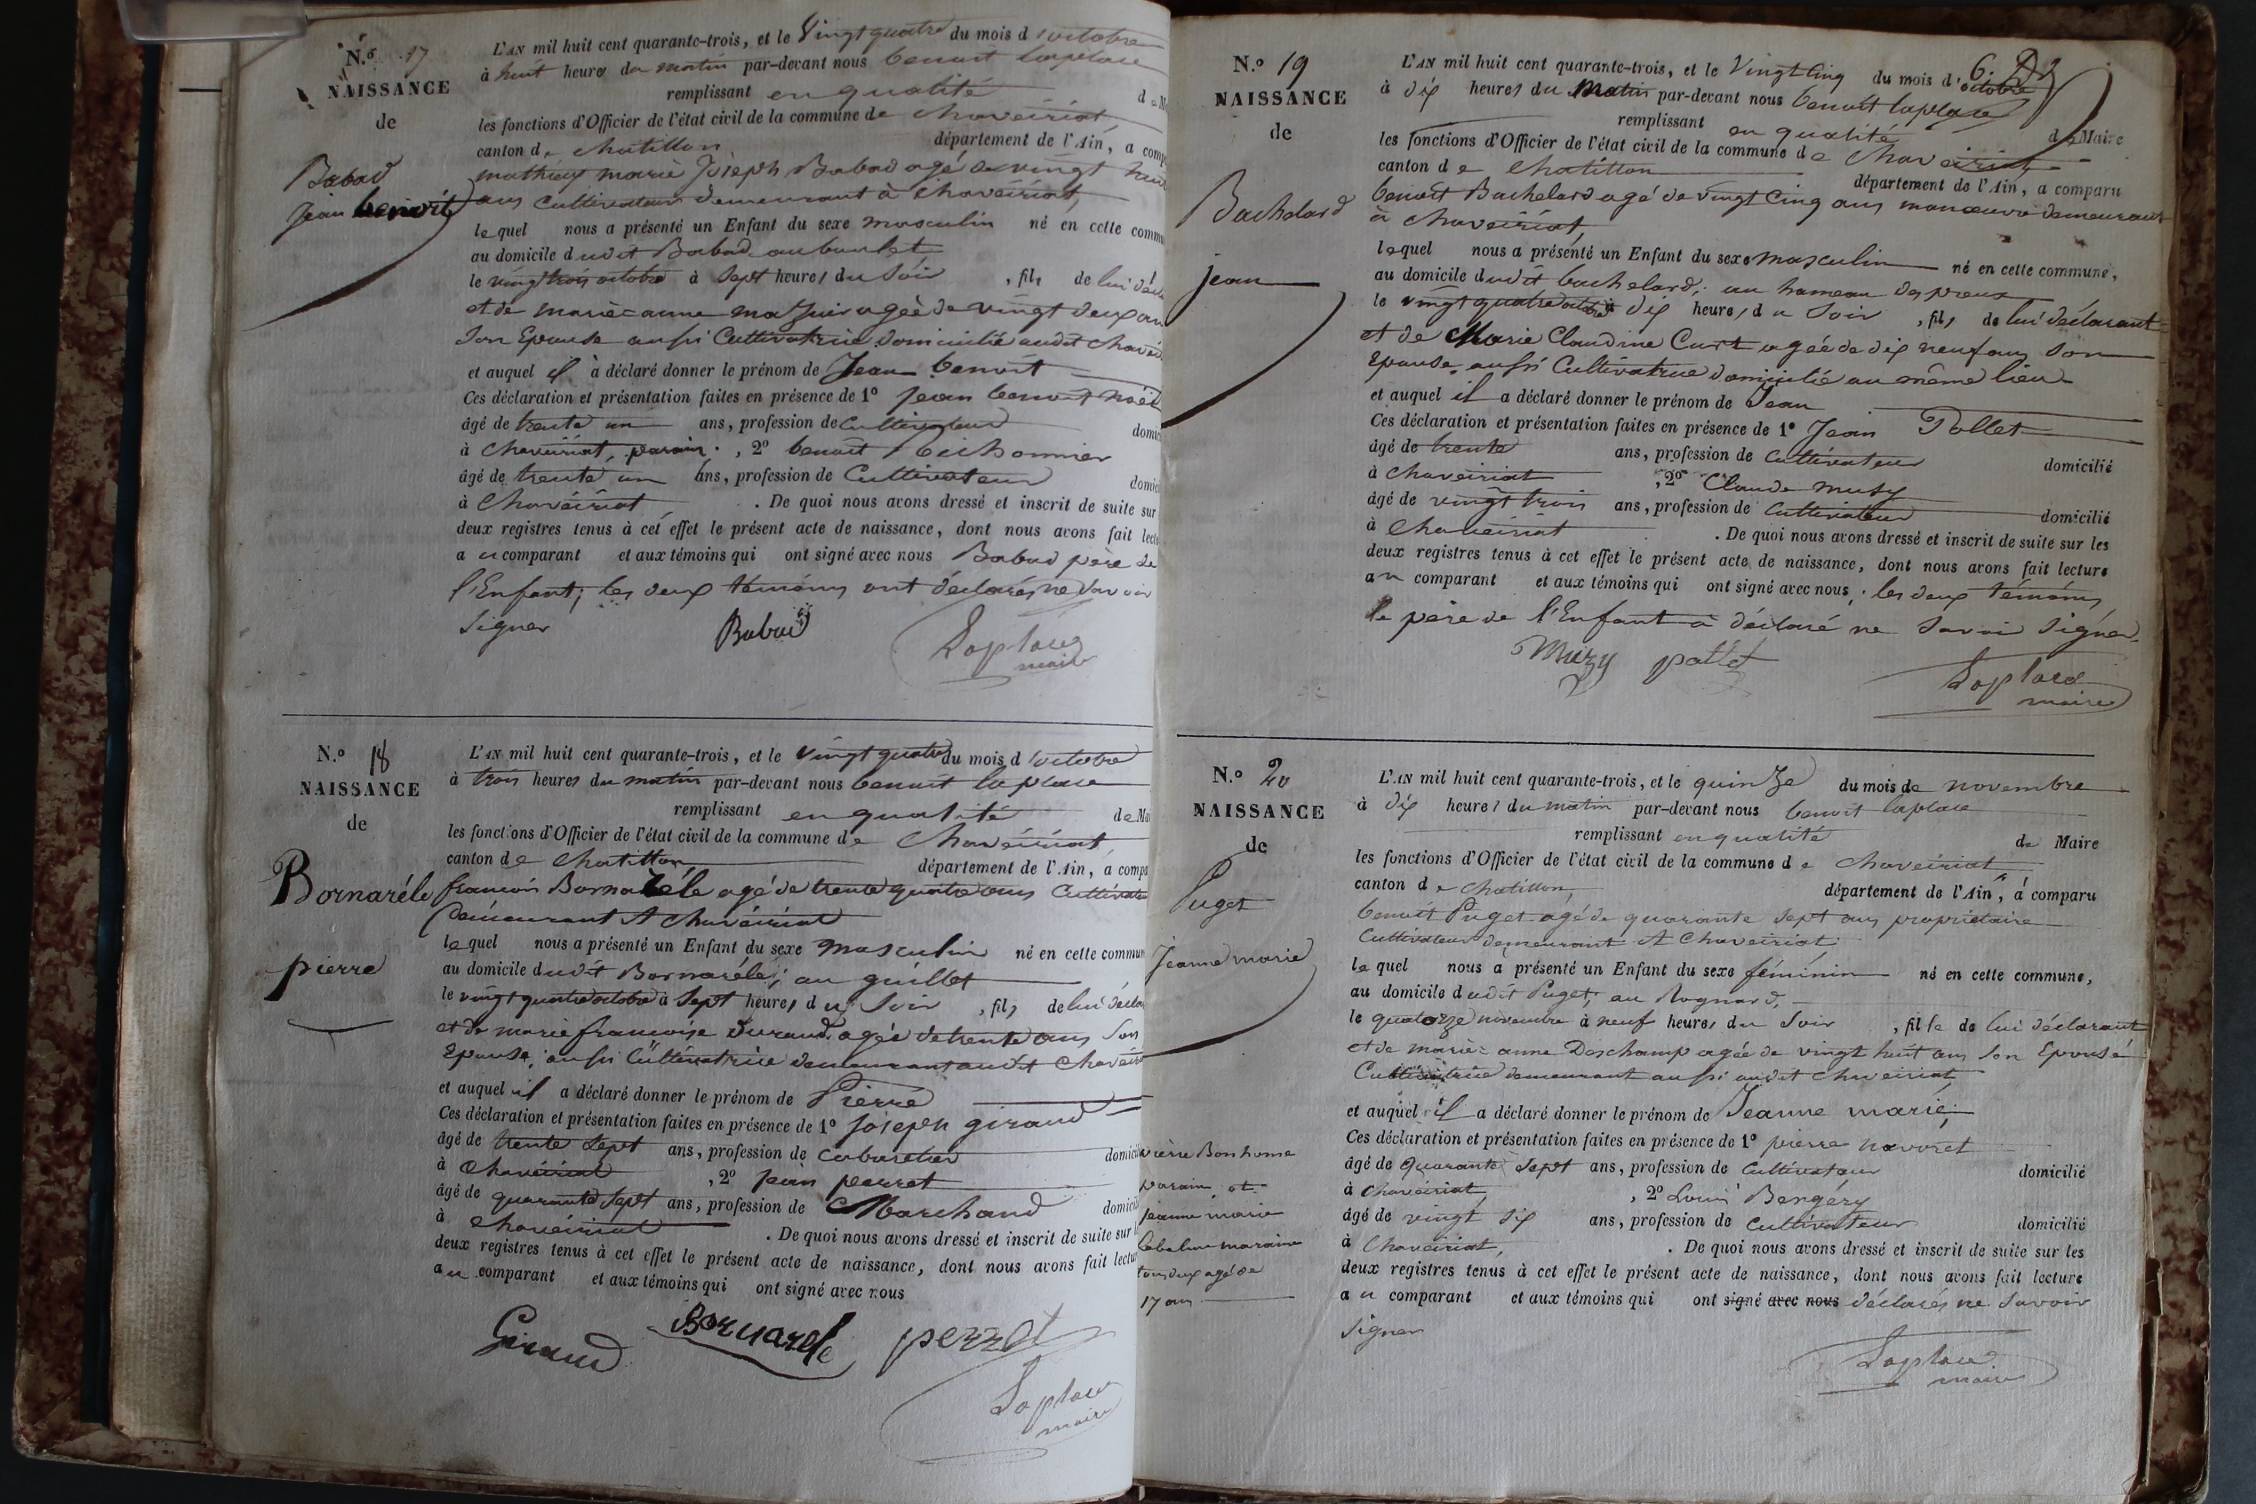 N.o 17
NAISSANCE
de
Babad
jean benoit
L'AN mil huit cent quarante-trois, et le Vingt quatre du mois d'octobre
à huit heures du matin par-devant nous benoit laplace
remplissant en qualité de M
les fonctions d'Officier de l'état civil de la commune de chaveiriat
canton de chatillon département de l'Ain, a comp
mathieu marie Joseph Babad agé de vingt huit
ans Cultivateur demeurant à Chaveiriat,
lequel nous a présenté un Enfant du sexe masculin né en cette commu
au domicile dudit Babad au
le vingt trois octobre à sept heures du Soir, fils de lui décla
et de marie-anne agée de vingt deux an
Son Epouse aussi Cultivatrice domicilié audit chavei
et auquel il à déclaré donner le prénom de Jean benoit
Ces déclaration et présentation faites en présence de 1o jean benoit noël
âgé de trente un ans, profession de Cultivateur domici
à Chaveiriat, parain, 2o benoit
âgé de trente un ans, profession de Cultivateur domici
à Chaveiriat. De quoi nous avons dressé et inscrit de suite sur
deux registres tenus à cet effet le présent acte de naissance, dont nous avons fait lectu
au comparant et aux témoins qui ont signé avec nous Babad père de
l'Enfant; les deux témoins ont déclarés ne Savoir
signer
Babad
Laplace
maire
N.o 18
NAISSANCE
de
Bornaréle
pierre
L'AN mil huit cent quarante-trois, et le vingt quatre du mois d'octobre
à trois heures du matin par-devant nous benoit laplace
remplissant en qualité de Mai
les fonctions d'Officier de l'état civil de la commune de Chaveiriat
canton de Chatillon, département de l'Ain, a compa
francois Bornaréle agé de trente quatre ans Cultivate
Demeurant A chaveiriat
lequel nous a présenté un Enfant du sexe masculin né en cette commun
au domicile dudit Bornaréle; au guillet
le vingt quatre octobre à Sept heures du Soir, fils de lui décla
et de marie francoise Durand agée de trente ans Son
Epouse; aussi Cultivatrice demeurant audit Chaveir
et auquel il a déclaré donner le prénom de Pierre
Ces déclaration et présentation faites en présence de 1o joseph giraud
âgé de trente Sept ans, profession de Cabaretier domicili
à Chaveiriat, 2o jean perret
âgé de quarante Sept ans, profession de Marchand domicili
à Chaveiriat. De quoi nous avons dressé et inscrit de suite sur l
deux registres tenus à cet effet le présent acte de naissance, dont nous avons fait lectur
au comparant et aux témoins qui ont signé avec nous
Giraud Bornarele perret
Laplace
maire
N.o 19
NAISSANCE
de
Bachelard
jean
L'AN mil huit cent quarante-trois, et le Vingt Cinq du mois d'octobre
à dix heures du Matin par-devant nous benoit laplace
remplissant en qualité de Maire
les fonctions d'Officier de l'état civil de la commune de Chaveiriat
canton de Chatillon département de l'Ain, a comparu
benoit Bachelard agé de vingt Cinq ans manœuvre demeurant
à Chaveiriat,
lequel nous a présenté un Enfant du sexe masculin né en cette commune,
au domicile dudit bachelard; au hameau des
le vingt quatre octobre à dix heures du Soir, fils de lui déclarant
et de Marie Claudine Curt agée de dix neuf ans Son
Epouse, aussi Cultivatrice domicilié au même lieu
et auquel il a déclaré donner le prénom de Jean
Ces déclaration et présentation faites en présence de 1o Jean Pollet
âgé de trente ans, profession de Cultivateur domicilié
à chaveiriat, 2o Claude musy
âgé de vingt trois ans, profession de Cultivateur domicilié
à Chaveiriat. De quoi nous avons dressé et inscrit de suite sur les
deux registres tenus à cet effet le présent acte de naissance, dont nous avons fait lecture
au comparant et aux témoins qui ont signé avec nous, les deux témoins
le père de l'Enfant à déclaré ne Savoir Signer
Muzy pollet
Laplace
maire
N.o 20
NAISSANCE
de
Puget
Jeanne marie
L'AN mil huit cent quarante-trois, et le quinze du mois de novembre
à dix heures du matin par-devant nous benoit laplace
remplissant en qualité de Maire
les fonctions d'Officier de l'état civil de la commune de Chaveiriat
canton de Chatillon, département de l'Ain, a comparu
benoit Puget agé de quarante Sept ans propriétaire
Cultivateur demeurant A Chaveiriat,
lequel nous a présenté un Enfant du sexe féminin né en cette commune,
au domicile dudit Puget, au Rognard,
le quatorze novembre à neuf heures du Soir, fille de lui déclarant
et de marie-anne Deschamp agée de vingt huit ans Son Epouse
Cultivatrice demeurant aussi audit Chaveiriat
et auquel il a déclaré donner le prénom de Jeanne marie,
Ces déclaration et présentation faites en présence de 1o pierre navoret
âgé de quarante Sept ans, profession de Cultivateur domicilié
à Chaveiriat, 2o Louis Bergéry
âgé de vingt six ans, profession de Cultivateur domicilié
à Chaveiriat. De quoi nous avons dressé et inscrit de suite sur les
deux registres tenus à cet effet le présent acte de naissance, dont nous avons fait lecture
au comparant et aux témoins qui ont signé avec nous déclarés ne Savoir
Signer
Laplace
maire
pierre Bonhome
parain et
jeanne marie
maraine
tous deux agé de
17 ans